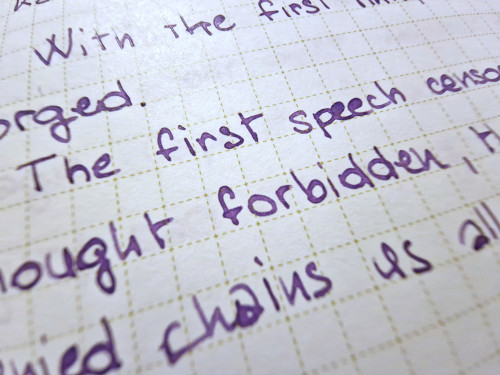 With the first
orged.
The first speech censo
hought forbidden,
nied chains us all